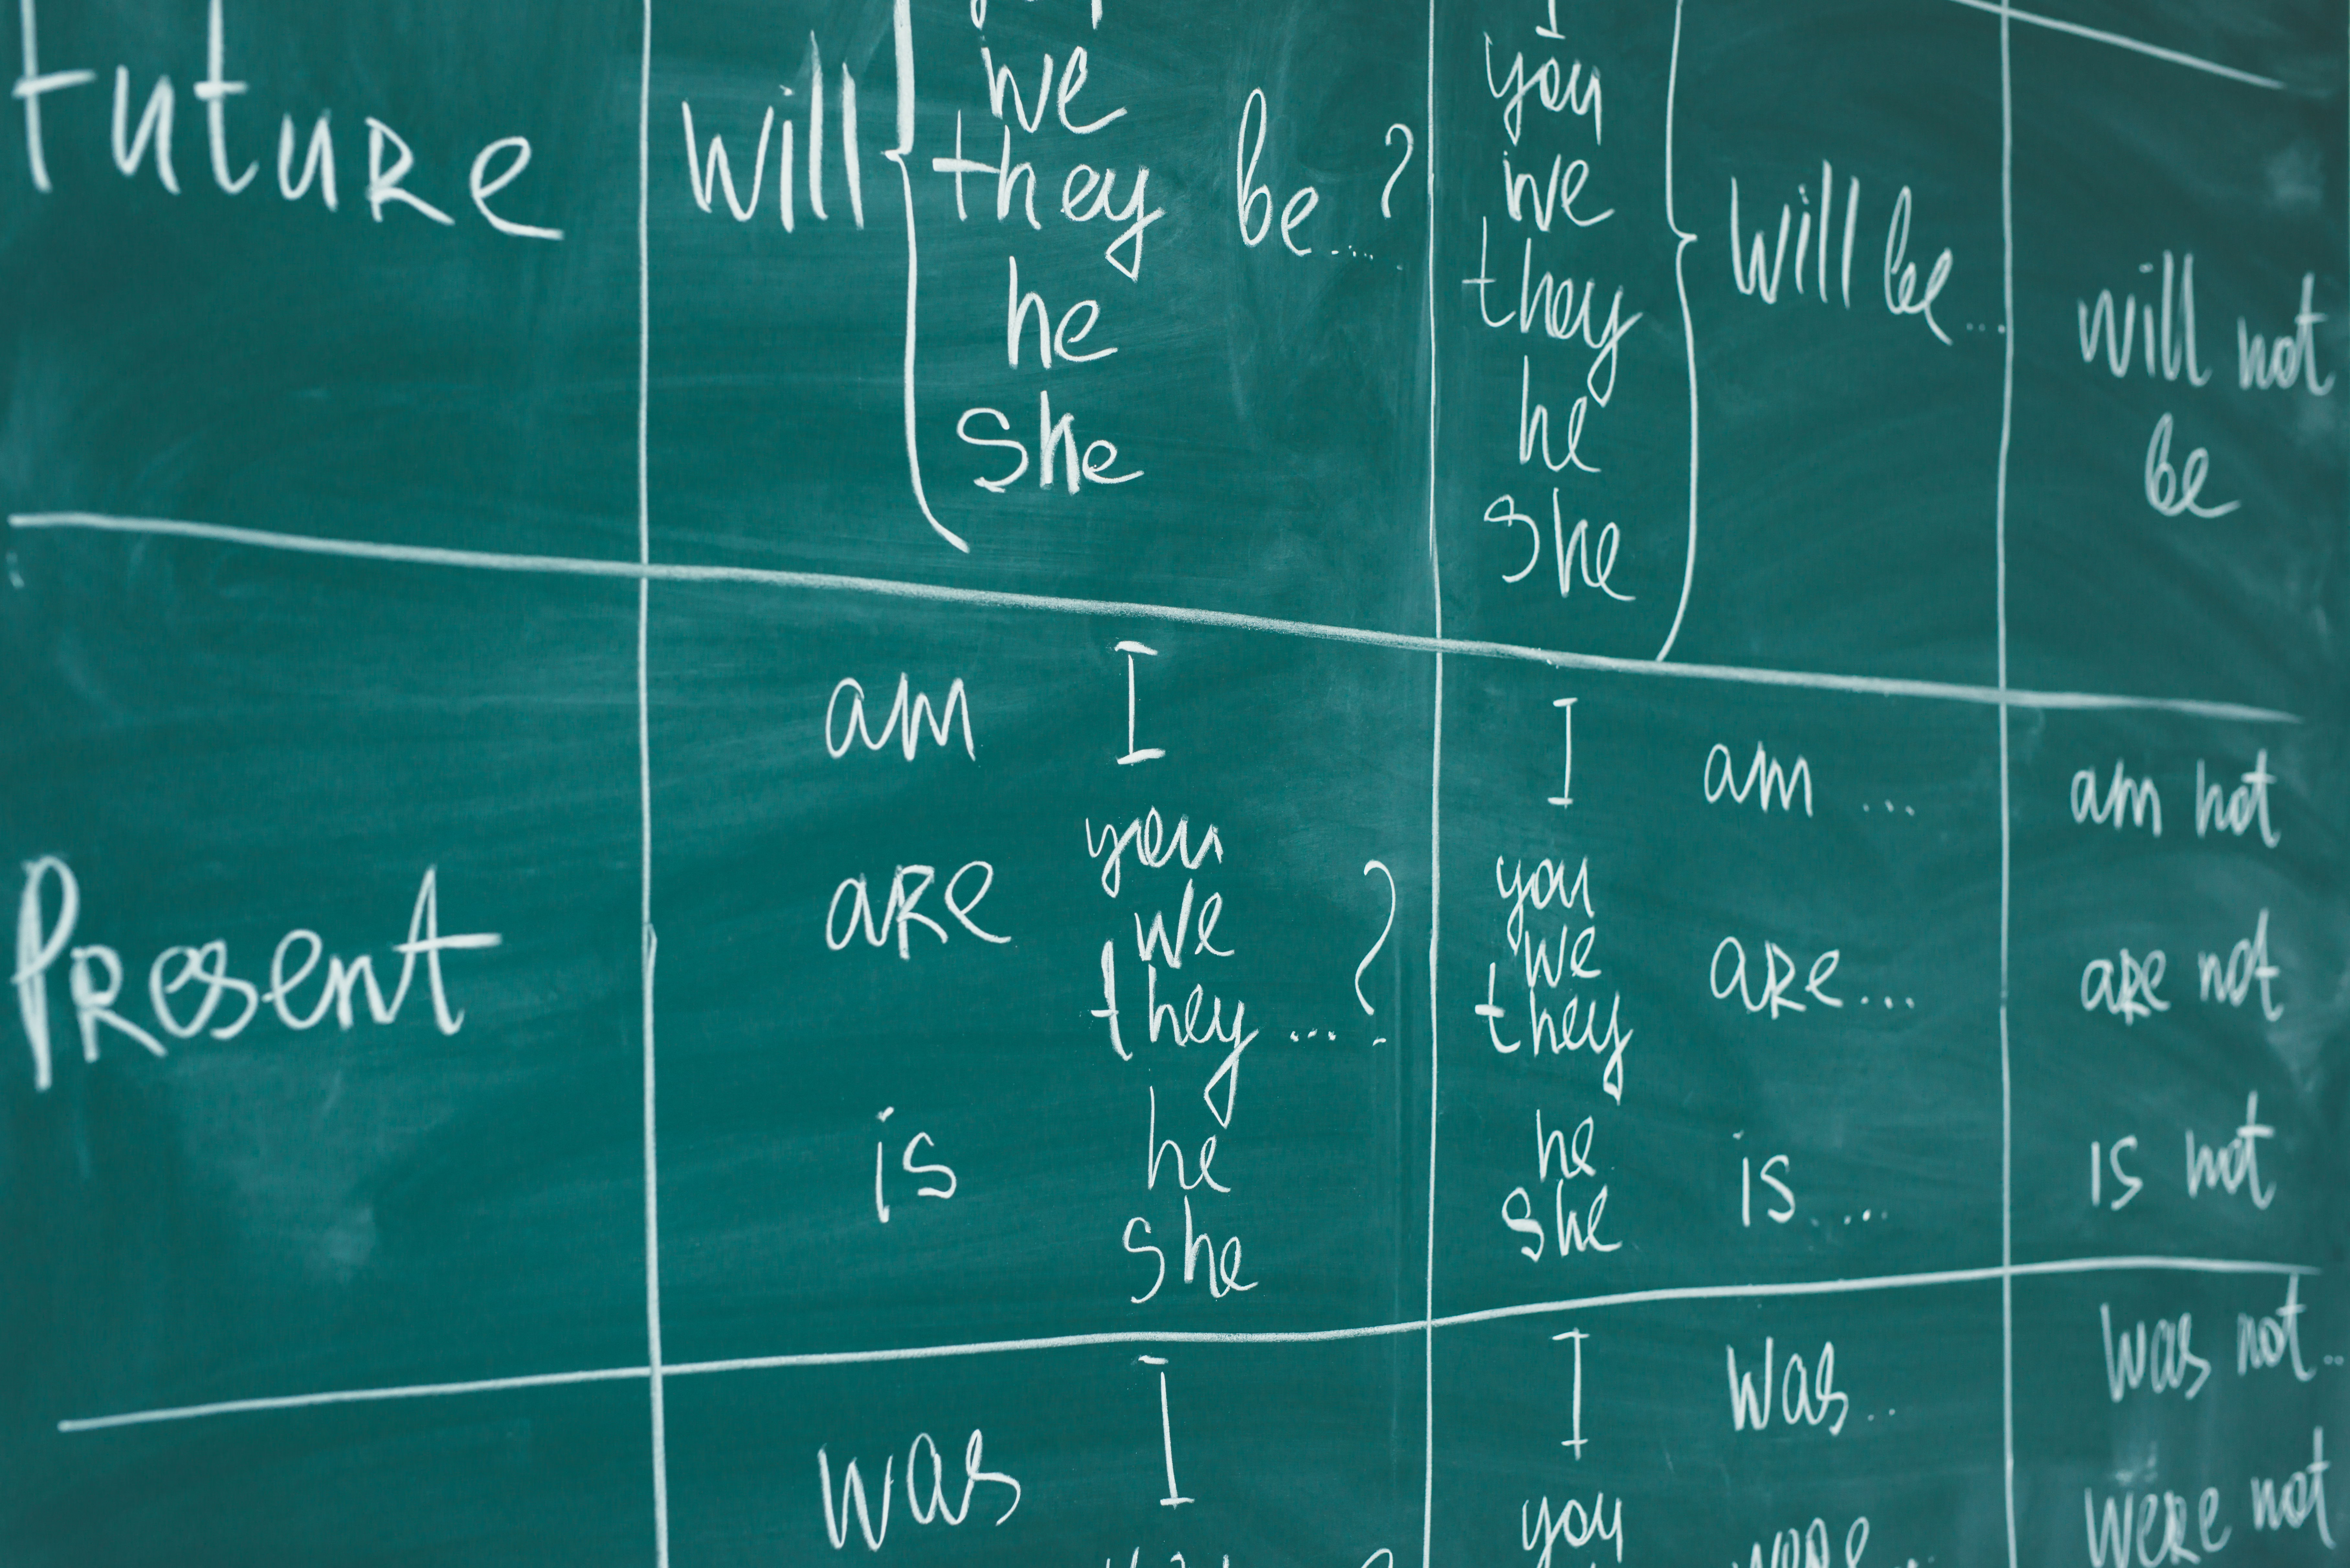 Future
will
we
they
he
she
be....?
I
you
we
they
he
she
will be...
will not
be
Present
am I
are you
we
they ...?
is he
she
I am ...
you
we are...
they
he
she is....
am not
are not
is not
was I
I was..
you
were..
was not..
were not